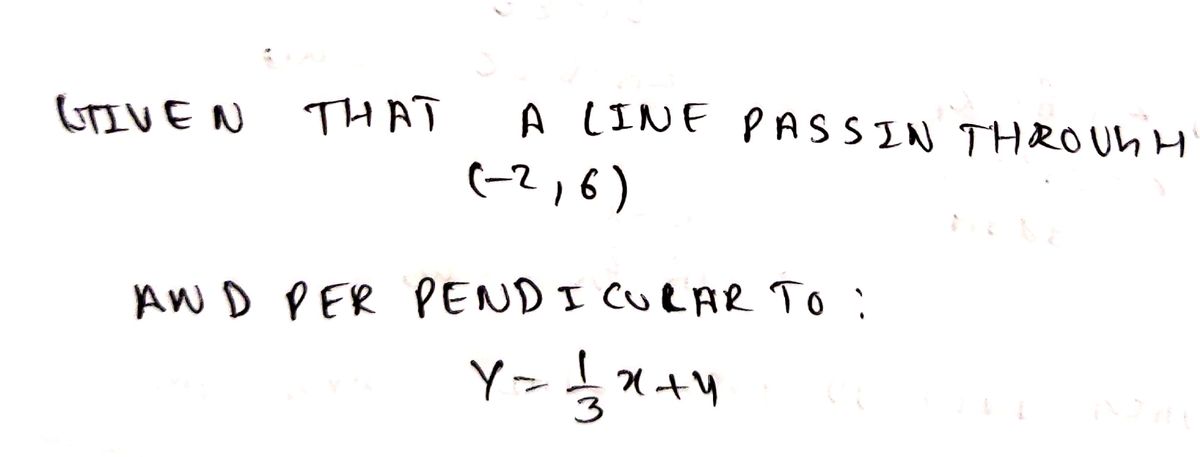 GIVEN THAT A LINE PASSIN THROUGH
(-2, 6)
AND PERPENDICULAR TO :
Y = 1/3 x + 4